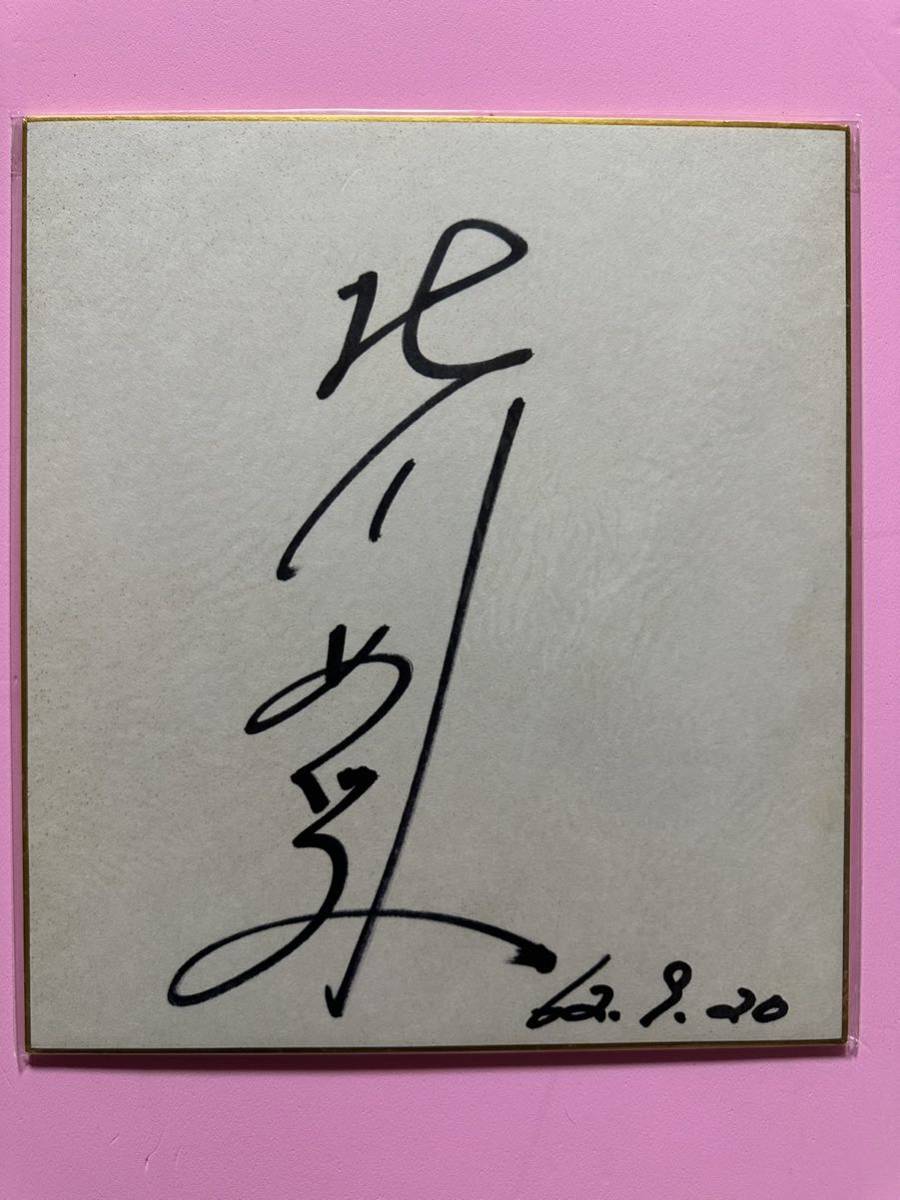 北川めぐみ
62.9.20